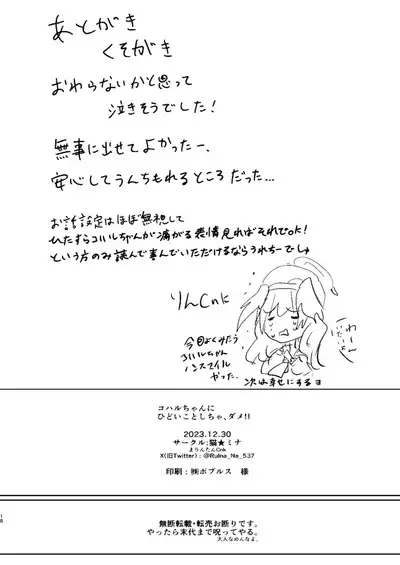 あとがき
くそがき
おわらないかと思って
泣きそうでした!
無事に出せてよかったー、
安心してうんちもれるところだった…
お話設定はほぼ無視して
ひたすらコハルちゃんが痛がる表情見れればそれでok!
という方のみ読んで喜んでいただけるならうれちーでしゅ
りんCnk
今回よくみたら
コハルちゃん
ノンスマイル
やった。
次は幸せにするヨ
わーん
いたいよぉ
コハルちゃんに
ひどいことしちゃ、ダメ!!
2023.12.30
サークル:猫★ミナ
まりんたんCnk
X(旧Twitter):@Rulina_Ns_537
印刷:㈱ポプルス 様
無断転載・転売お断りです。
やったら末代まで呪ってやる。
大人なめんなよ。